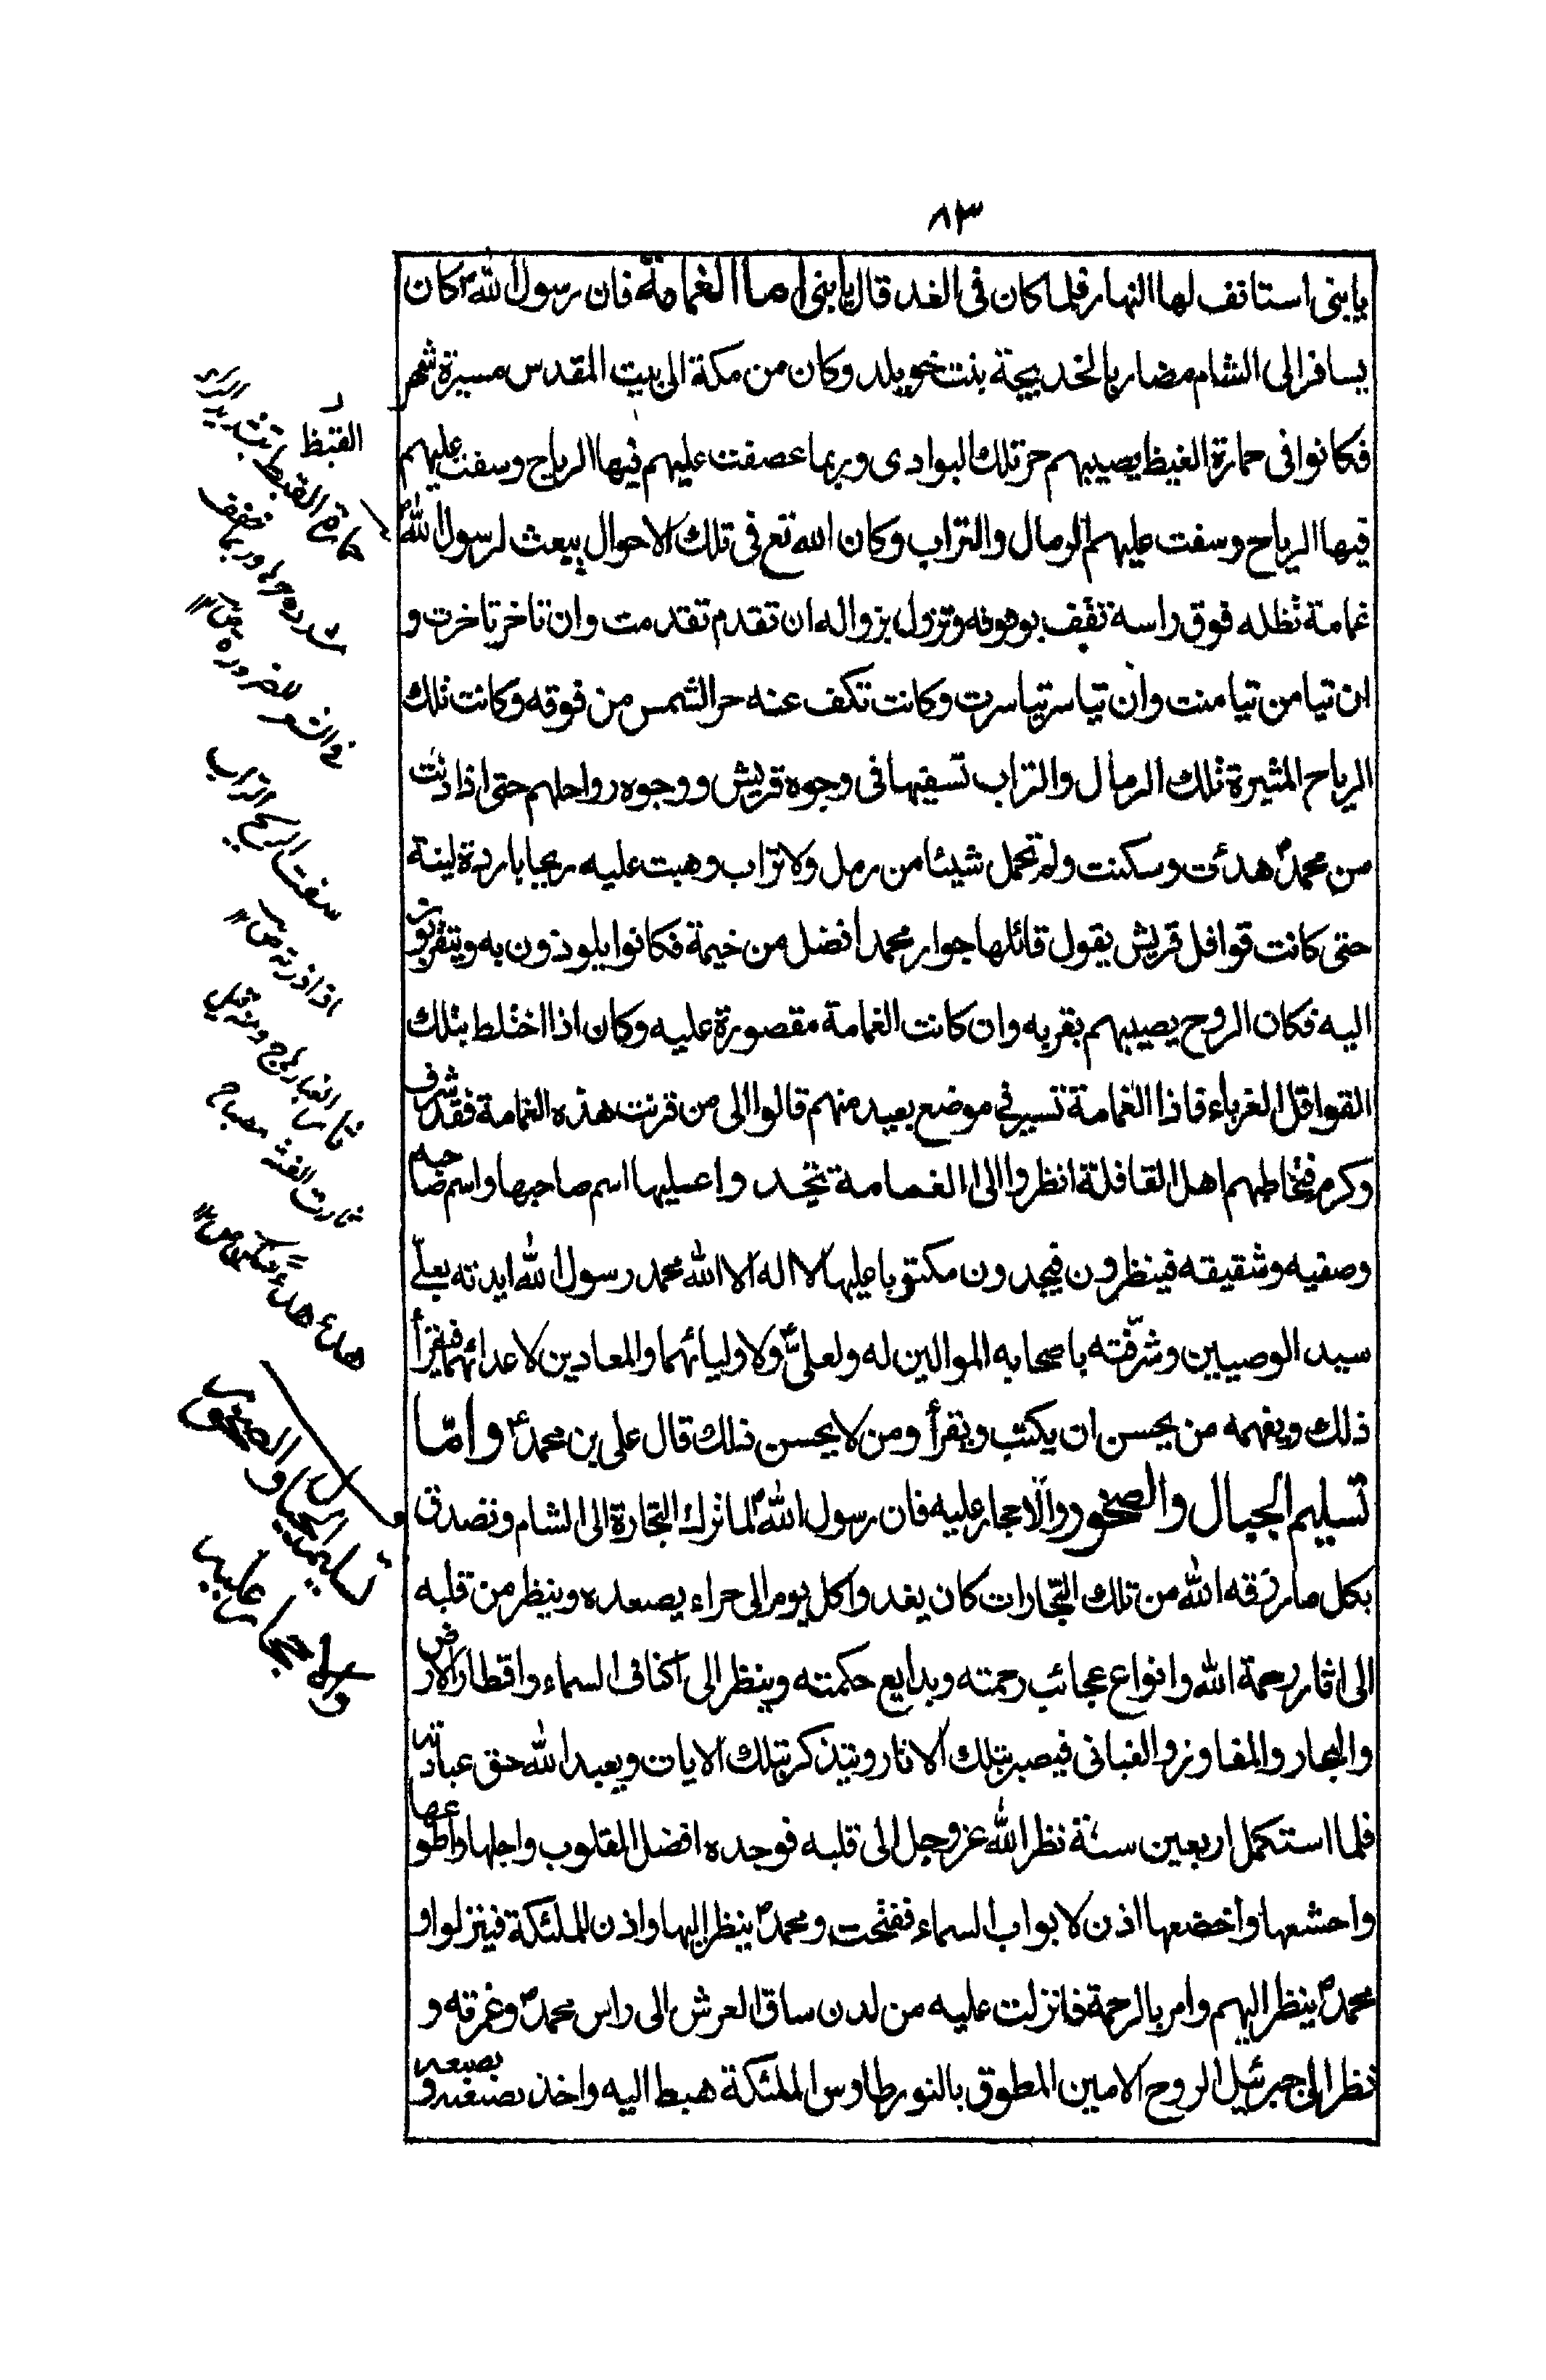 ٨٣
يا بنى استانف لها النهار فلما كان فى الغد قال يا بنى اما الغمامة فان رسول اللّٰه ص كان
يسافر الى الشام مضاربا لخديجة بنت خويلد وكان من مكة الى بيت المقدس مسيرة شهر
فكانوا فى حمارة الغيظ يصيبهم حر تلك البوادى وربما عصفت عليهم فيها الرياح وسفت عليهم
فيها الرياح وسفت عليهم الرمال والتراب وكان الله تع فى تلك الاحوال يبعث لرسول اللّٰه ص
غمامة تظله فوق راسه تقف بوقوفه وتزول بزواله ان تقدم تقدمت وان تاخر تاخرت و
ان تيامن تيامنت وان تياسر تياسرت وكانت تكف عنه حر الشمس من فوقه وكانت تلك
الرياح المثيرة تلك الرمال والتراب تسفيها فى وجوه قريش ووجوه رواحلهم حتى اذا دنت
من محمد ص هدئت وسكنت ولم تحمل شيئا من رمل ولا تراب وهبت عليه ريحا باردة لينة
حتى كانت قوافل قريش يقول قائلها جوار محمد افضل من خيمة فكانوا يلوذون به ويتقربون
اليه فكان الروح يصيبهم بقربه وان كانت الغمامة مقصورة عليه وكان اذا اختلط بتلك
القوافل الغرباء فاذا الغمامة تسير فى موضع بعيد منهم قالوا الى من قرنت هذه الغمامة فقد شرف
وكرم فيخاطبهم اهل القافلة انظروا الى الغمامة تجدوا عليها اسم صاحبها واسم صاحبه
وصفيه وشقيقه فينظرون فيجدون مكتوبا عليها لا اله الا الله محمد رسول اللّٰه ايدته بعلى
سيد الوصيين وشرّفته باصحابه الموالين له ولعلى ع ولاوليائهما والمعادين لاعدائهما فيقرأ
ذلك ويفهمه من يحسن ان يكتب ويقرأ ومن لا يحسن ذلك قال على بن محمد ع وامّا
تسليم الجبال والصخور والاحجار عليه فان رسول اللّٰه ص لما ترك التجارة الى الشام وتصدق
بكل ما رزقه اللّٰه من تلك التجارات كان يغدوا كل يوم الى حراء يصعده وينظر من قلبه
الى اثار رحمة اللّٰه وانواع عجائب رحمته وبدايع حكمته وينظر الى اكناف السماء واقطار الارض
والبحار والمفاوز والفيافى فيصير بتلك الاثار ويتذكر بتلك الايات ويعبد اللّٰه حق عبادته
فلما استكمل اربعين سنة نظر اللّٰه عز وجل الى قلبه فوجده افضل القلوب واجلها واطوعها
واخشعها واخضعها اذن لابواب السماء ففتحت ومحمد ص ينظر اليها واذن للملئكة فينزلوا و
محمد ص ينظر اليهم وامر بالرحمة فانزلت عليه من لدن ساق العرش الى راس محمد ص وغمرته و
نظر الى جبرئيل الروح الامين المطوق بالنور طاوس الملئكة هبط اليه واخذ بضبعه و
القيظ
سفت الريح التراب
اذا ذرته ص
ثار الغبار هاج
هدء هدًا سكن ص
تسليم الجبال والصخور
والاحجار عليه